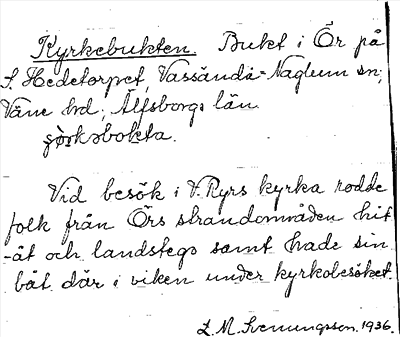 Kyrkebukten. Bukt i Ör på
S. Hedetorpet, Vassända-Naglum sn,
Väne hd, Älfsborgs län.
Vid besök i V. Ryrs kyrka rodde
folk från Örs strandområden hit
-åt och landstegs samt hade sin
båt där i viken under kyrkobesöket.
L. M. Svenungsson. 1936.